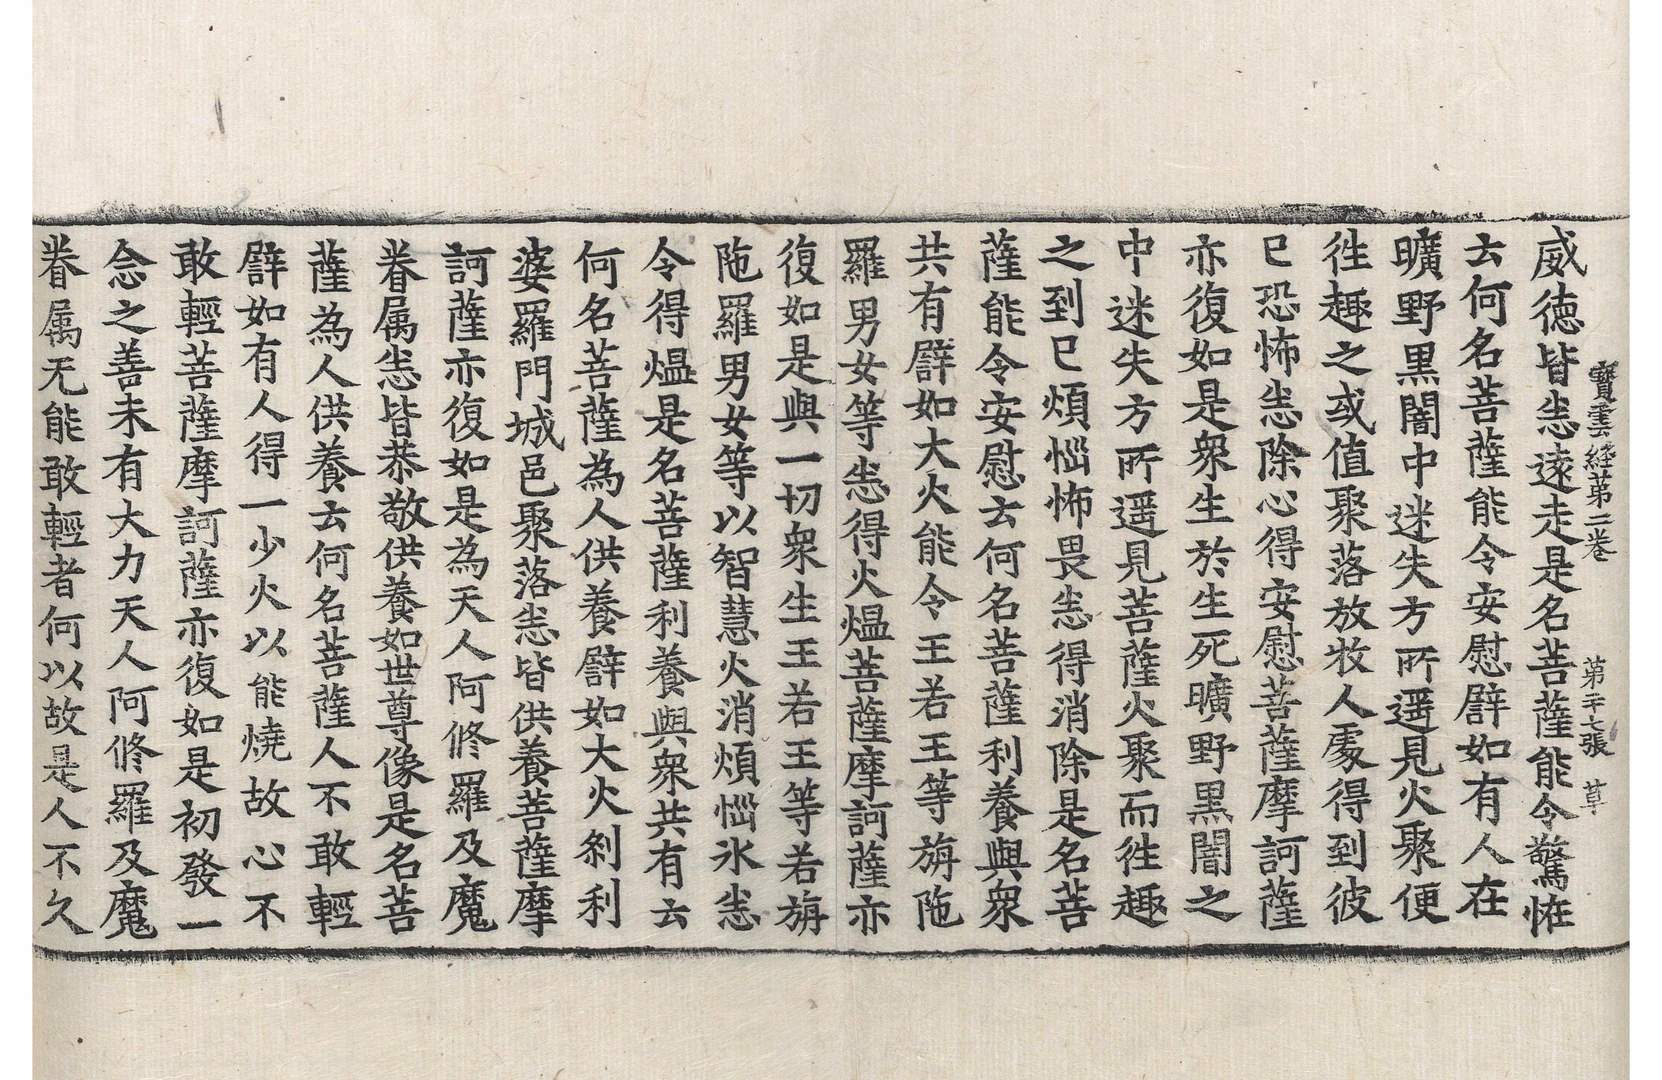 寶雲経第二巻 第二十七張 草
威徳皆悉遠走是名菩薩能令驚恠
云何名菩薩能令安慰譬如有人在
曠野黒闇中迷失方所遥見火聚便
徃趣之或值聚落放牧人處得到彼
已恐怖悉除心得安慰菩薩摩訶薩
亦復如是衆生於生死曠野黒闇之
中迷失方所遥見菩薩火聚而徃趣
之到已煩惱怖畏悉得消除是名菩
薩能令安慰云何名菩薩利養與衆
共有譬如大火能令王若王等旃陁
羅男女等悉得火煴菩薩摩訶薩亦
復如是與一切衆生王若王等若旃
陁羅男女等以智慧火消煩惱氷悉
令得煴是名菩薩利養與衆共有云
何名菩薩為人供養譬如大火刹利
婆羅門城邑聚落悉皆供養菩薩摩
訶薩亦復如是為天人阿修羅及魔
眷属悉皆恭敬供養如世尊像是名菩
薩為人供養云何名菩薩人不敢輕
譬如有人得一少火以能燒故心不
敢輕菩薩摩訶薩亦復如是初發一
念之善未有大力天人阿修羅及魔
眷属无能敢輕者何以故是人不久